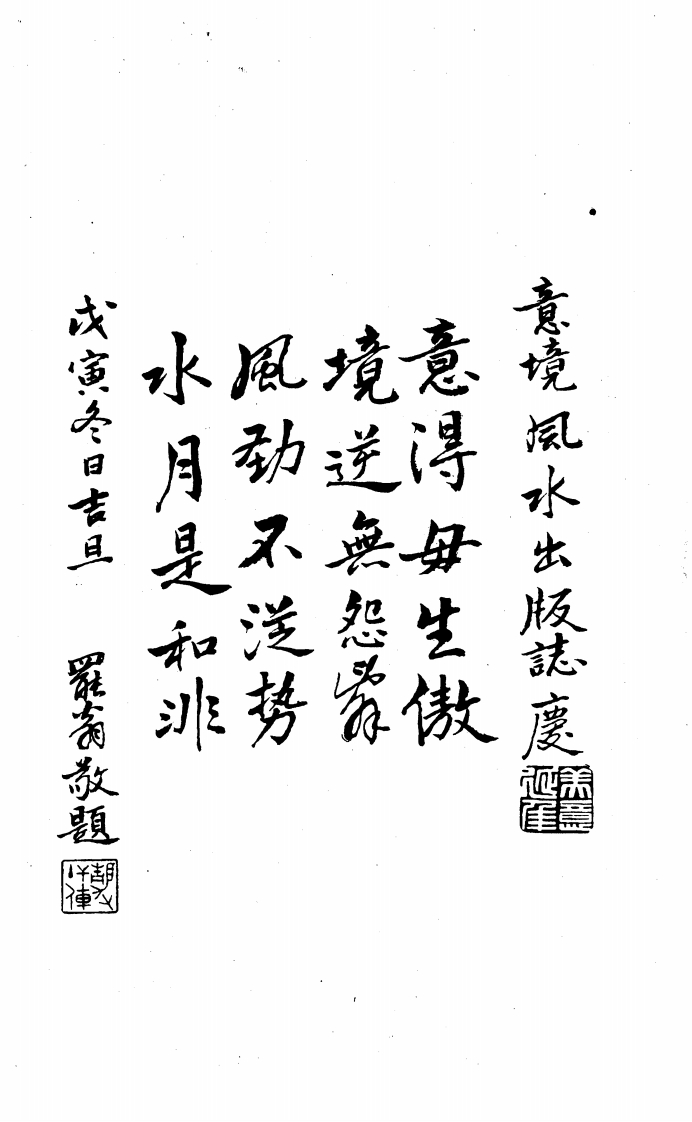 意境風水出版誌慶
意得毋生傲
境逆無怨
風勁不從勢
水月是和非
戊寅冬日吉旦
罷翁敬題